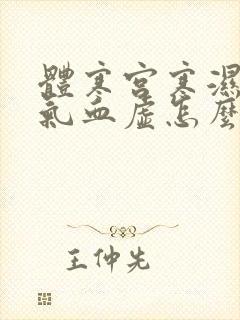 體寒宮寒濕
氣血虛怎麼
王仲先